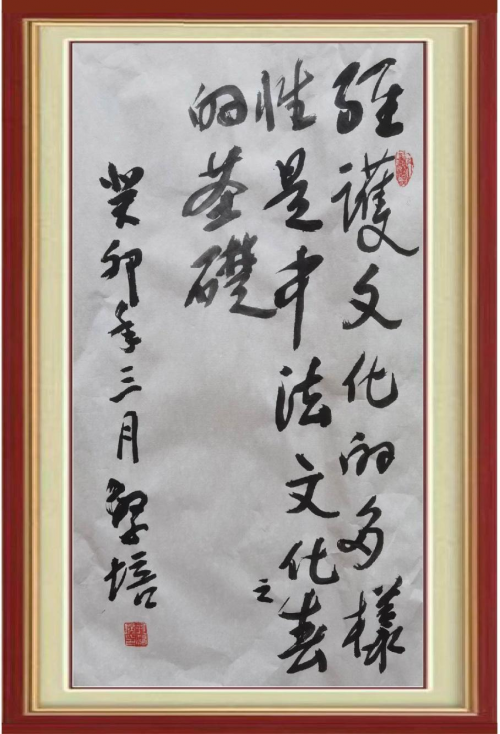 維護文化的多樣
性是中法文化之春
的基礎
癸卯年三月 培